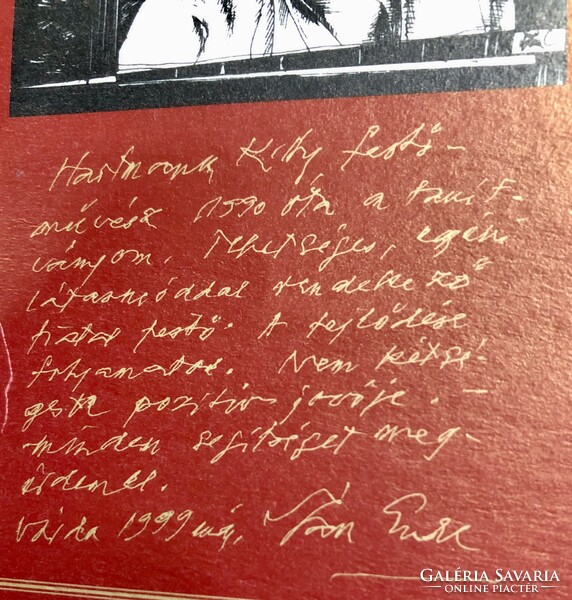 Hartmann Kity festő-
művész 1990 óta a tanít-
ványom. Tehetséges, egyéni
látásmóddal rendelkező
fiatal festő. A fejlődése
folyamatos. Nem kétsé-
ges pozitiv jovője. –
minden segítséget meg-
érdemel.
1999 máj. Endre
GALÉRIA SAVARIA
ONLINE PIACTÉR